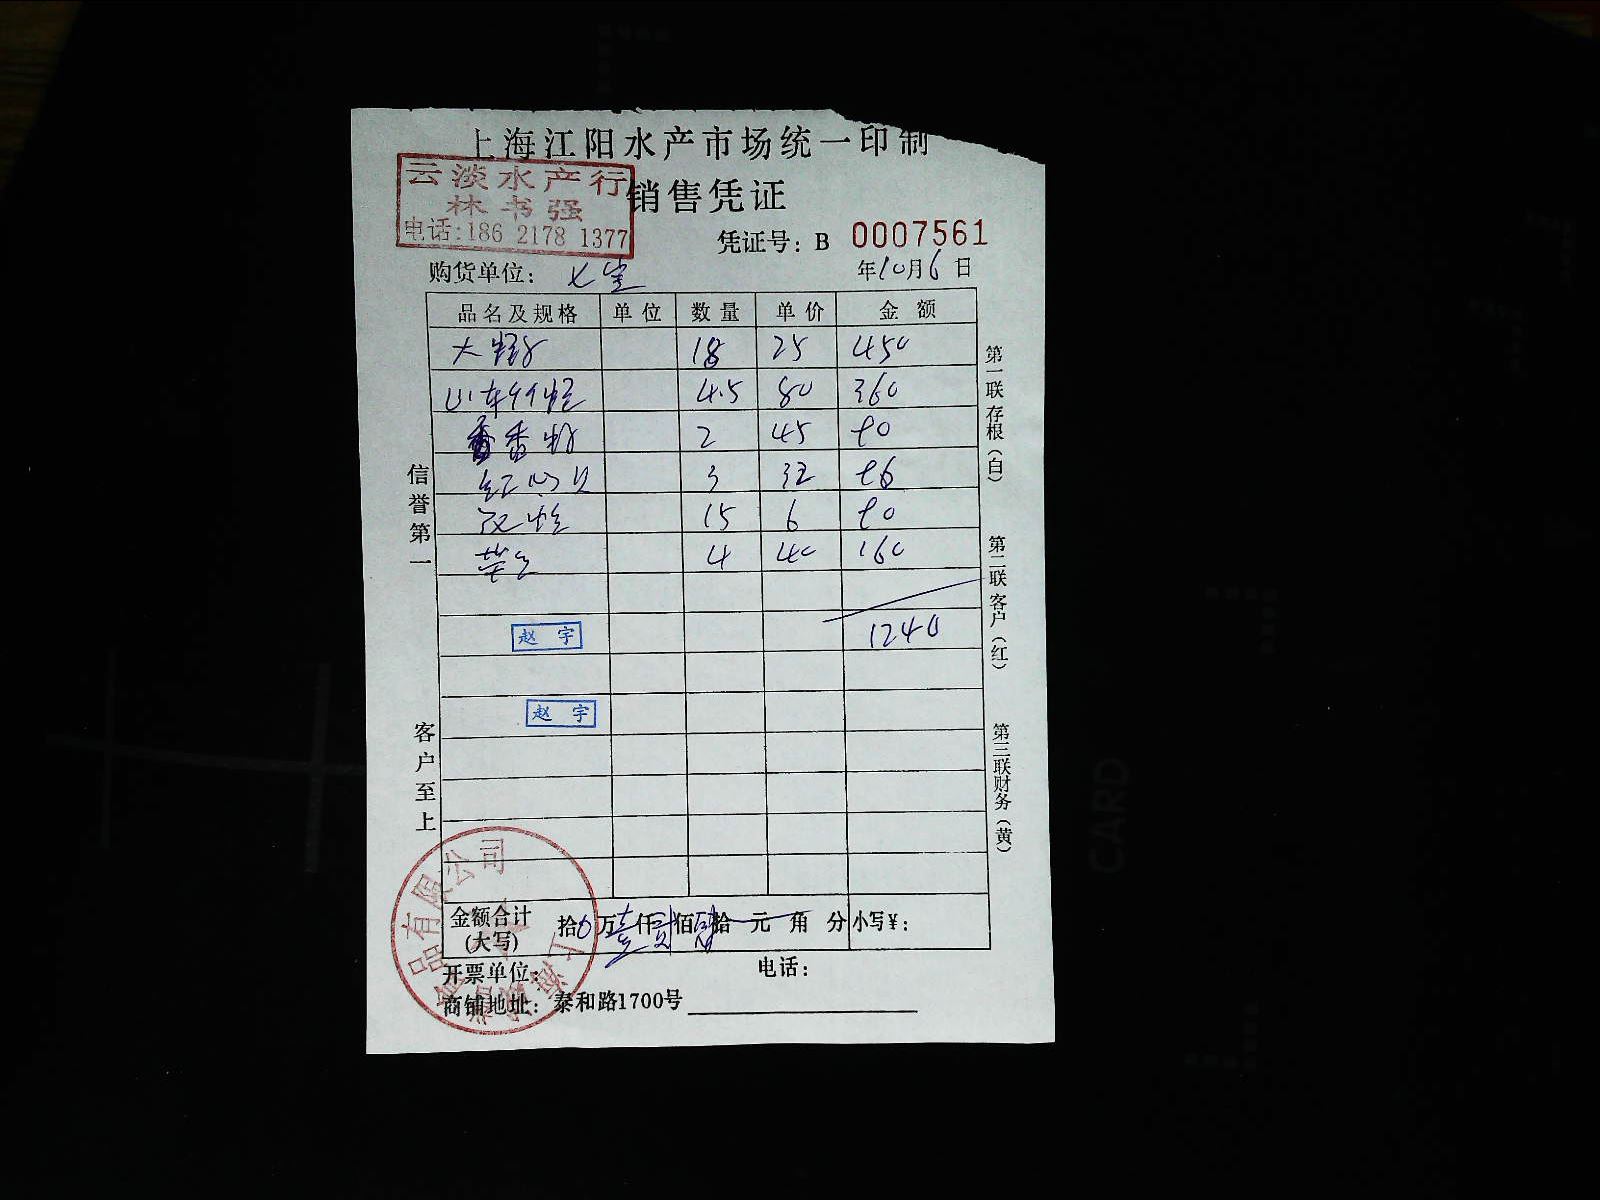 上海江阳水产市场统一印制
云淡水产行
林书强
电话:186 2178 1377
销售凭证
凭证号: B 0007561
购货单位: 七宝
年10月6日
品名及规格 单位 数量 单价 金额
大 18 25 450
4.5 80 360
香 2 45 90
红心贝 3 32 96
15 6 90
4 40 160
1240
赵宇
赵宇
信誉第一
客户至上
第一联存根(白)
第二联客户(红)
第三联财务(黄)
金额合计(大写) 拾0万壹仟贰佰肆拾元角分 小写¥:
开票单位: 电话:
商铺地址: 泰和路1700号
品有限公司